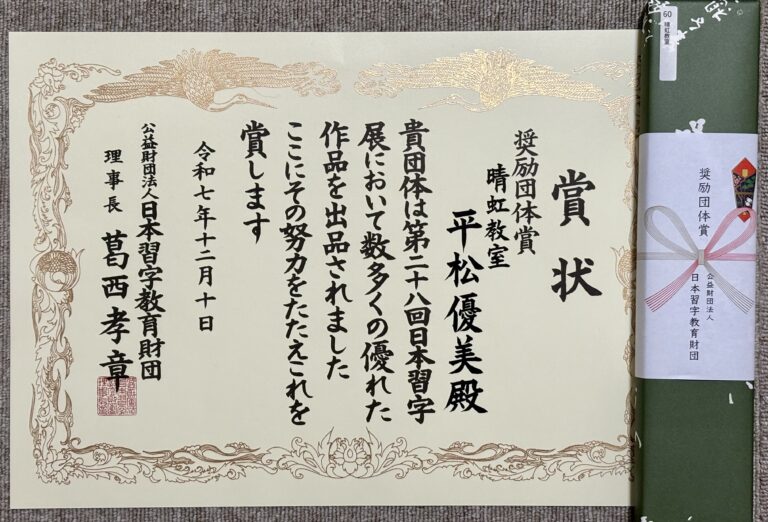 賞状
奨励団体賞
晴虹教室
平松優美殿
貴団体は第二十八回日本習字
展において数多くの優れた
作品を出品されました
ここにその努力をたたえこれを
賞します
令和七年十二月十日
公益財団法人日本習字教育財団
理事長 葛西孝章
60
晴虹教室
奨励団体賞
公益財団法人
日本習字教育財団